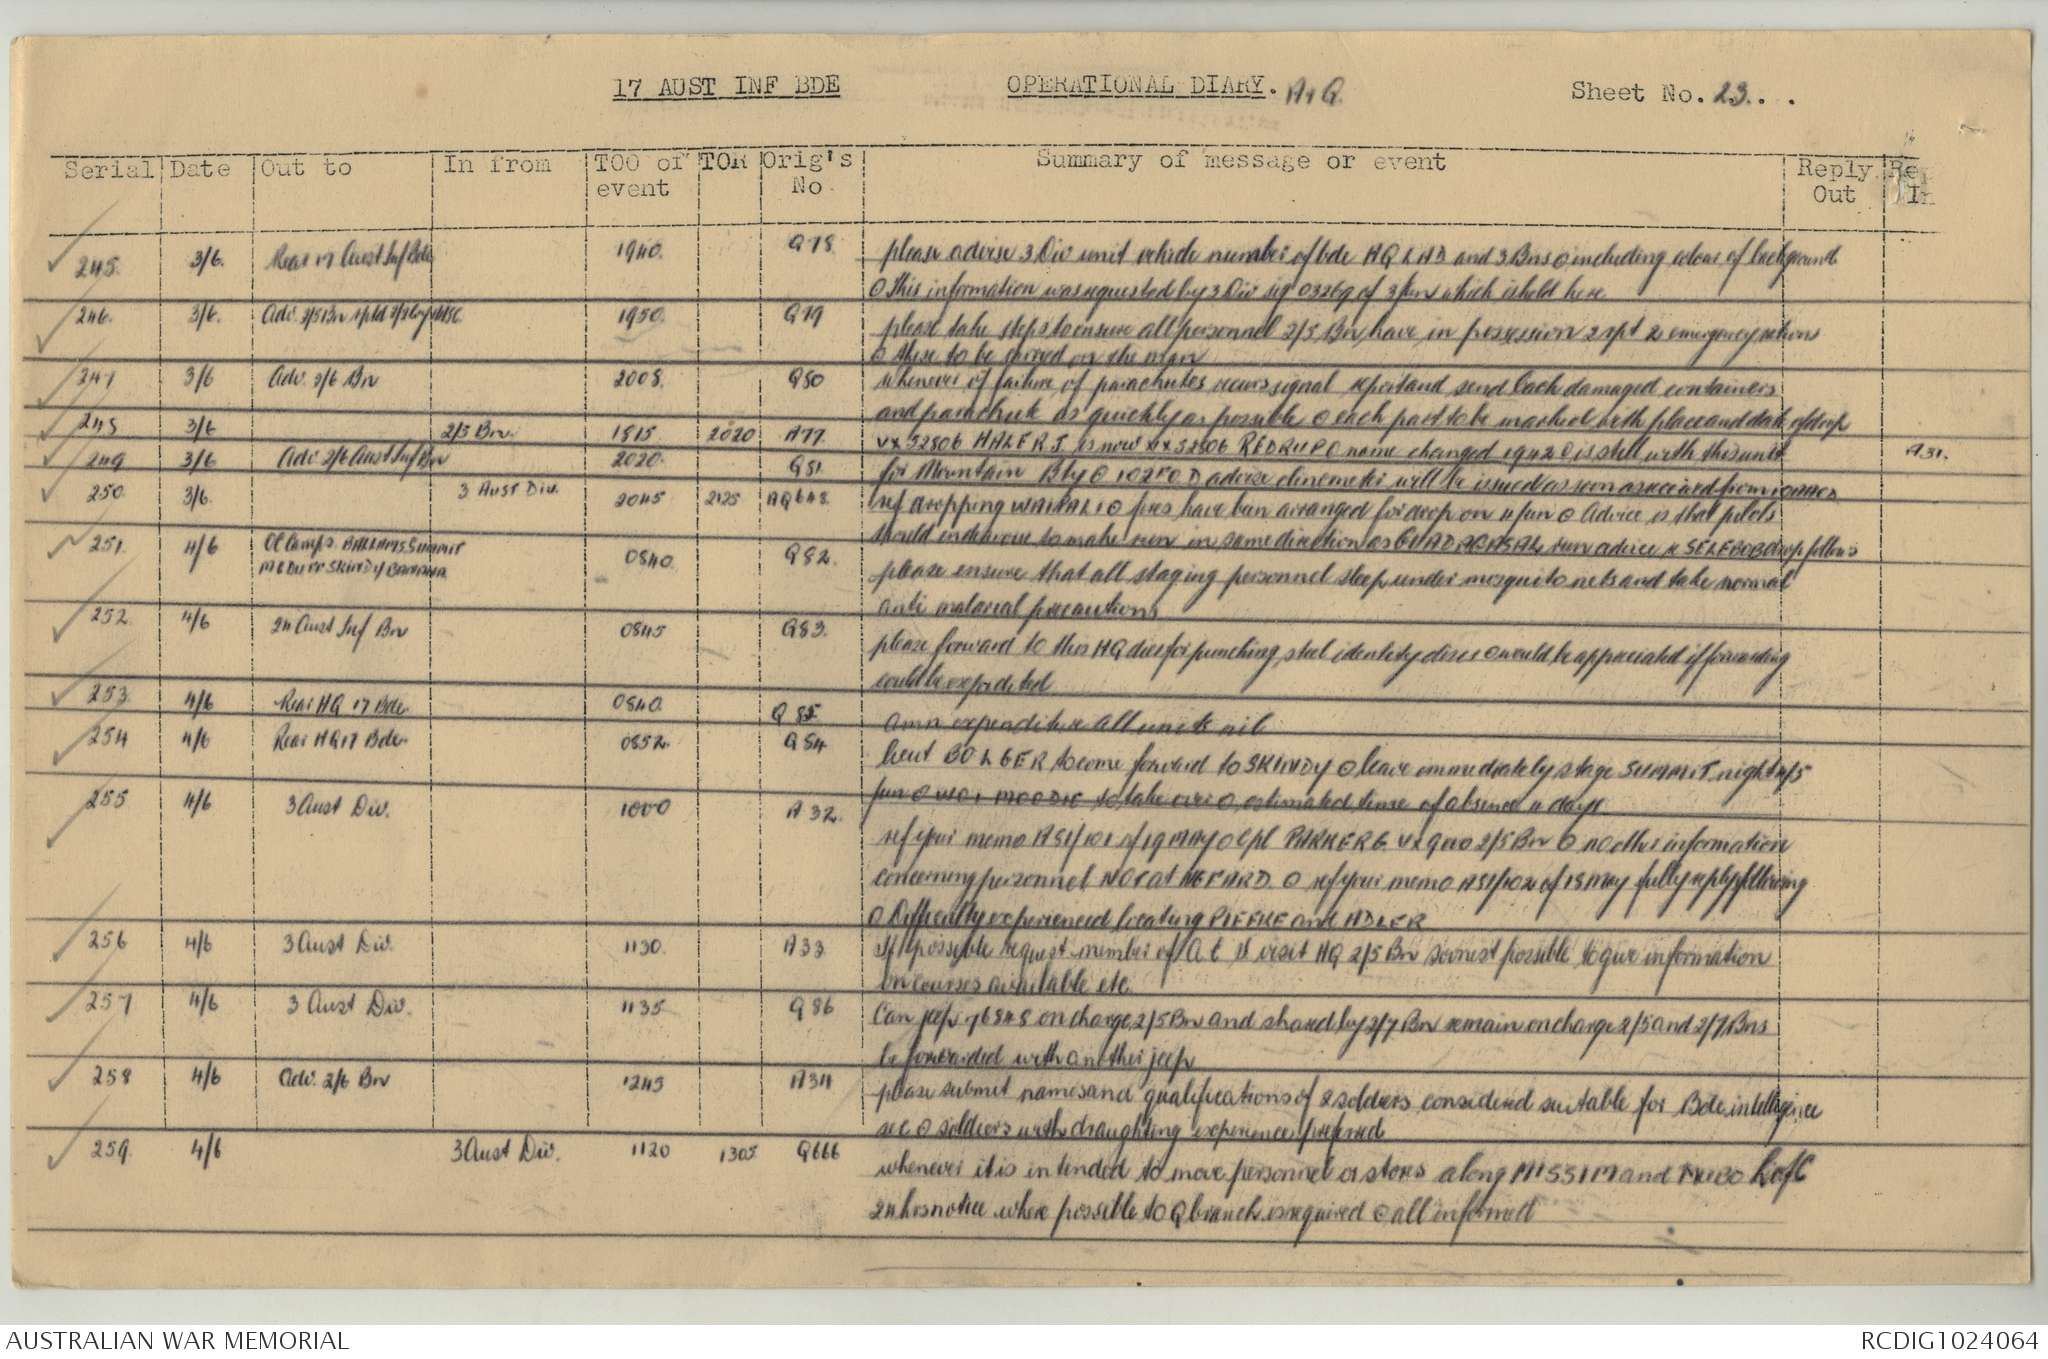 17 AUST INF BDE OPERATIONAL DIARY. A+Q. Sheet No. 23. . .
Serial Date Out to In from TOO of event TOR Orig's No Summary of message or event Reply Out Rep In
245. 3/6. Rear 17 Aust Inf Bde 1940. Q78 please advise 3 Div unit vehicle number of bde HQ LAD and 3 Bns o including colour of background
o this information was requested by 3 Div sig of 3 Jun which is held here
246. 3/6. Adv. 2/5 Bn 1950. Q79 please take steps to ensure all personnel 2/5 Bn have in possession 2 rpt 2 emergency rations
o these to be carried on the man
247 3/6 Adv. 2/6 Bn 2005. Q80 whenever if failure of parachutes occurs signal report and send back damaged containers
and parachute as quickly as possible o each part to be marked with place and date of drop
248 3/6 2/5 Bn. 1815 2020 A77 VX 52806 HALE R.J. is now VX 52806 REDRUP o name changed 1942 o is still with this unit A31.
249 3/6 Adv 2/6 Aust Inf Bn 2020. Q81 for Mountain Bty o advise clinometer will be issued as soon as received from
250 3/6. 3 Aust Div. 2045 2125 AQ648 ref dropping o have been arranged for drop on 4 Jun o Advice is that pilots
should endeavour to make run in same direction as run advice re SELEBOB drop follows
251. 4/6 OC Camps. BALLAMS SUMMIT SKINDY BANANA 0840. Q82 please ensure that all staging personnel sleep under mosquito nets and take normal
anti malarial precautions
252. 4/6 24 Aust Inf Bn 0845 Q83. please forward to this HQ dies for punching steel identity discs o would be appreciated if forwarding
could be expedited
253. 4/6 Rear HQ 17 Bde. 0840. Q 85 amn expenditure all units nil
254 4/6 Rear HQ 17 Bde. 0852. Q84 Lieut BOLGER to come forward to SKINDY o leave immediately stage SUMMIT night 4/5
Jun o to take over o estimated time of absence 4 days
255 4/6 3 Aust Div. 1000 A 32. ref your memo of 19 MAY o Cpl PARKER G. 2/5 Bn o no other information
concerning personnel NOT at o ref your memo of 18 May fully reply following
o Difficulty experienced locating and ADLER
256 4/6 3 Aust Div. 1130. A33 If possible request member of visit HQ 2/5 Bn soonest possible to give information
on courses available etc.
257 4/6 3 Aust Div. 1135 Q86 Can jeep 76848 on charge 2/5 Bn and shared by 2/7 Bn remain on charge 2/5 and 2/7 Bns
be forwarded with another jeep
258 4/6 Adv. 2/6 Bn 1245 A34 please submit names and qualifications of 2 soldiers considered suitable for Bde intelligence
sec o soldiers with draughting experience preferred
259. 4/6 3 Aust Div. 1120 1305 Q666 whenever it is intended to move personnel or stores along MISSIM and MUBO L of C
24 hrs notice where possible to Q branch is required o all informed
AUSTRALIAN WAR MEMORIAL RCDIG1024064